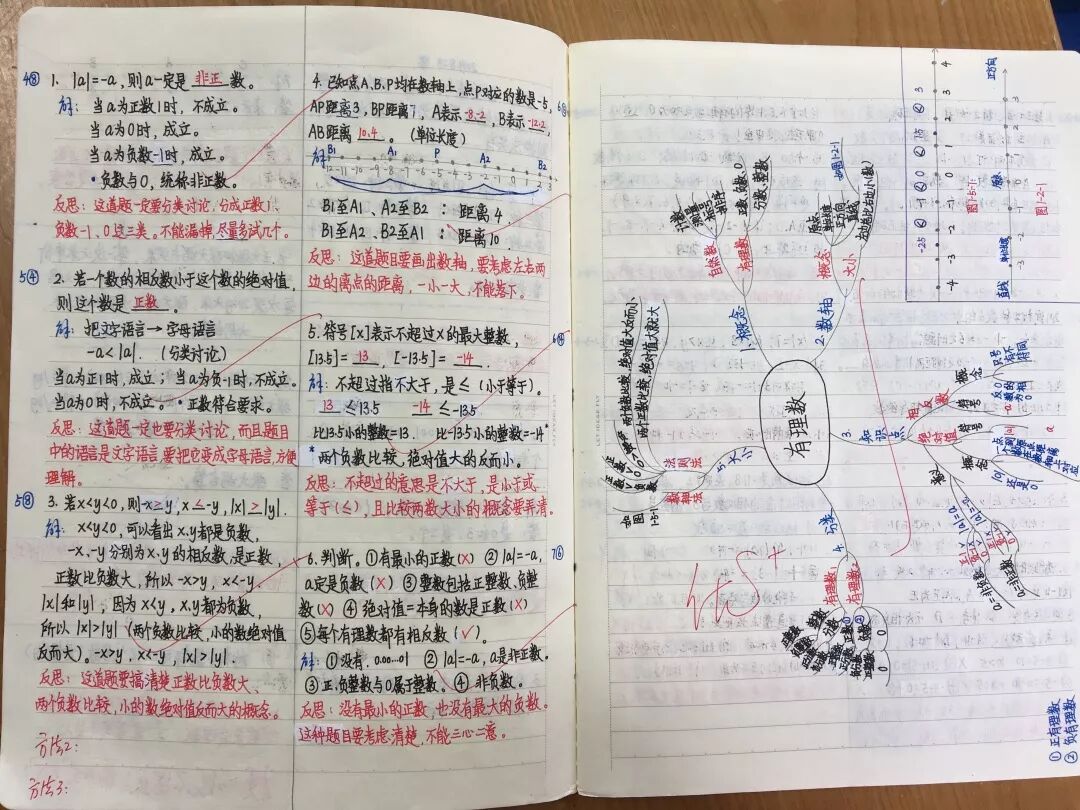 4⑧
1. |a|=-a, 则a一定是 非正 数。
解：当a为正数1时，不成立。
当a为0时，成立。
当a为负数-1时，成立。
·负数与0，统称非正数。
反思：这道题一定要分类讨论，分成正数1、
负数-1、0这三类。不能漏掉，尽量多试几个。
5④
2. 若一个数的相反数小于这个数的绝对值，
则这个数是 正数 。
解：把文字语言→字母语言
-a<|a|. （分类讨论）
当a为正1时，成立；当a为负-1时，不成立。
当a为0时，不成立。·正数符合要求。
反思：这道题一定也要分类讨论，而且题目
中的语言是文字语言，要把它变成字母语言，方便
理解。
5⑧
3. 若x<y<0，则-x≥y，x≤-y，|x|>|y|.
解：x<y<0，可以看出x、y都是负数，
-x、-y分别为x、y的相反数，是正数，
正数比负数大，所以-x>y，x<-y.
|x|和|y|：因为x<y，x、y都为负数，
所以|x|>|y|（两个负数比较，小的数绝对值
反而大）。-x>y，x<-y，|x|>|y|.
反思：这道题要搞清楚正数比负数大、
两个负数比较，小的数绝对值反而大的概念。
方法2：
方法3：
4. 已知点A、B、P均在数轴上，点P对应的数是-5，
AP距离3，BP距离7，A表示 -8、-2 ，B表示 -12、2 ，
AB距离 10、4 。（单位长度）
6⑧
解
B1 A1 P A2 B2
-12 -11 -10 -9 -8 -7 -6 -5 -4 -3 -2 -1 0 1 2 3
B1至A1、A2至B2：距离4
B1至A2、B2至A1：距离10
反思：这道题目要画出数轴，要考虑左右两
边的离点的距离，一小一大，不能落下。
5. 符号[x]表示不超过x的最大整数，
[13.5]= 13 ，[-13.5]= -14 .
解：不超过指不大于，是≤（小于等于）。
13 ≤13.5 -14 ≤-13.5
比13.5小的整数=13 比-13.5小的整数=-14*
*两个负数比较，绝对值大的反而小。
反思：不超过的意思是不大于，是小于或
等于（≤），且比较两数大小的概念要弄清。
7⑥
6. 判断。①有最小的正数（×）②|a|=-a，
a定是负数（×）③整数包括正整数、负整
数（×）④绝对值=本身的数是正数（×）
⑤每个有理数都有相反数（√）。
解：①没有，0.00…01 ②|a|=-a，a是非正数。
③正、负整数与0属于整数。④非负数。
反思：没有最小的正数，也没有最大的负数。
这种题目要考虑清楚，不能三心二意。
有理数
1.概念
自然数
计数
测量
标号
排序
有理数
正数、负数、0
分数、整数
2.数轴
概念
原点
单位长度
正方向
直线
如图1-2-1
大小
左边总比右边小(数)
3.知识点
相反数
概念
只有符号不同
0的相反数为0
符号
-a
绝对值
符号
|a|
概念
|0|还是0
4.分类
有理数1
有理数2
整数
分数
正整数
0
负整数
5.大小
法则法
正数>0>负数
两个正数比较，绝对值大数大
两个负数比较，绝对值大反而小
数轴法
如图1-5-1
图1-5-1
图1-2-1
-4 -3 -2 -1 0 1 2 3 4
直线
单位长度
原点
正方向
①正有理数
②负有理数